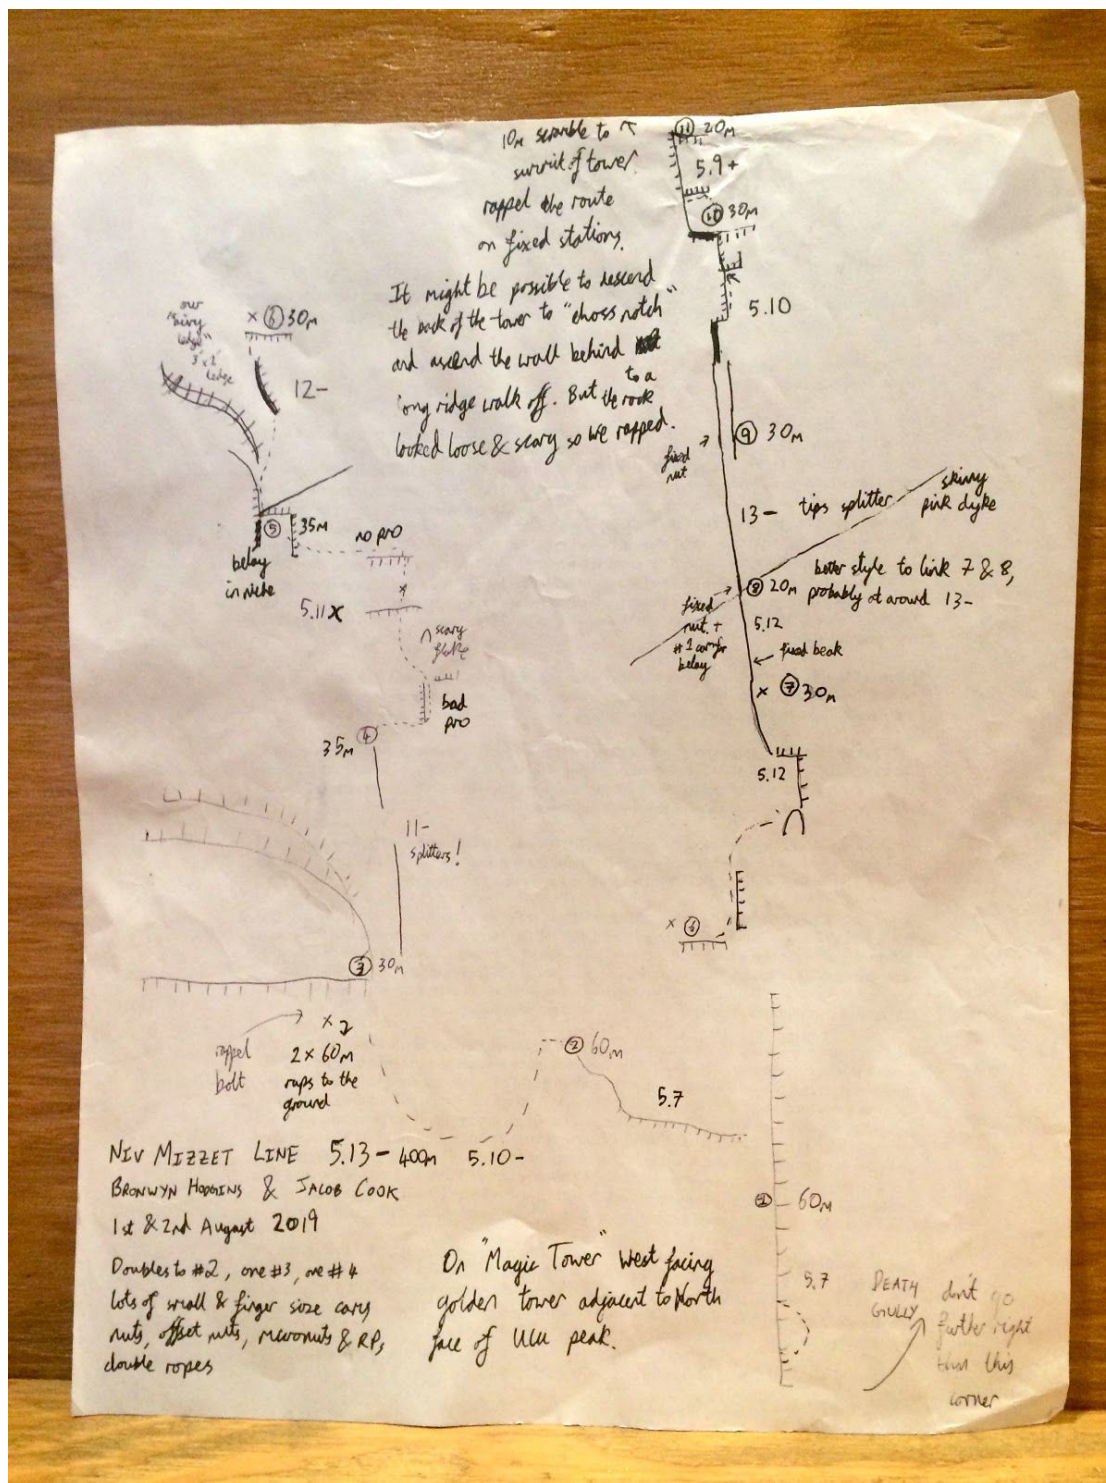 10m scramble to
summit of tower.
rappel the route
on fixed stations.
It might be possible to descend
the back of the tower to "choss notch"
and ascend the wall behind
to a
long ridge walk off. But the rock
looked loose & scary so we rapped.
11 20m
5.9+
10 30m
5.10
9 30m
fixed
nut
13- tips splitter
skinny
pink dyke
better style to link 7 & 8,
probably at around 13-
8 20m
fixed
nut +
#1 cam for
belay
5.12
fixed beak
x 7 30m
5.12
x 6
our
"bivy
ledge"
3' x 2'
ledge
x 6 30m
12-
5 35m
no pro
belay
in niche
x
5.11X
scary
flake
bad
pro
4
35m
11-
splitters!
3 30m
x 2
rappel
bolt
2 x 60m
raps to the
ground
2 60m
5.7
5.10-
1 60m
5.7
DEATH
GULLY
don't go
further right
than this
corner
NIV MIZZET LINE 5.13- 400m
BRONWYN HODGINS & JACOB COOK
1st & 2nd August 2019
Doubles to #2, one #3, one #4
lots of small & finger size cams
nuts, offset nuts, micronuts & RP,
double ropes
On "Magic Tower" West facing
golden tower adjacent to North
face of Ulu peak.